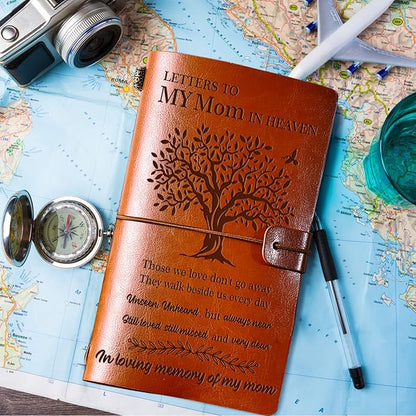 LETTERS TO
MY Mom IN HEAVEN
Those we love don't go away
They walk beside us every day
Unseen, Unheard, but always near
Still loved, still missed and very dear
In loving memory of my mom